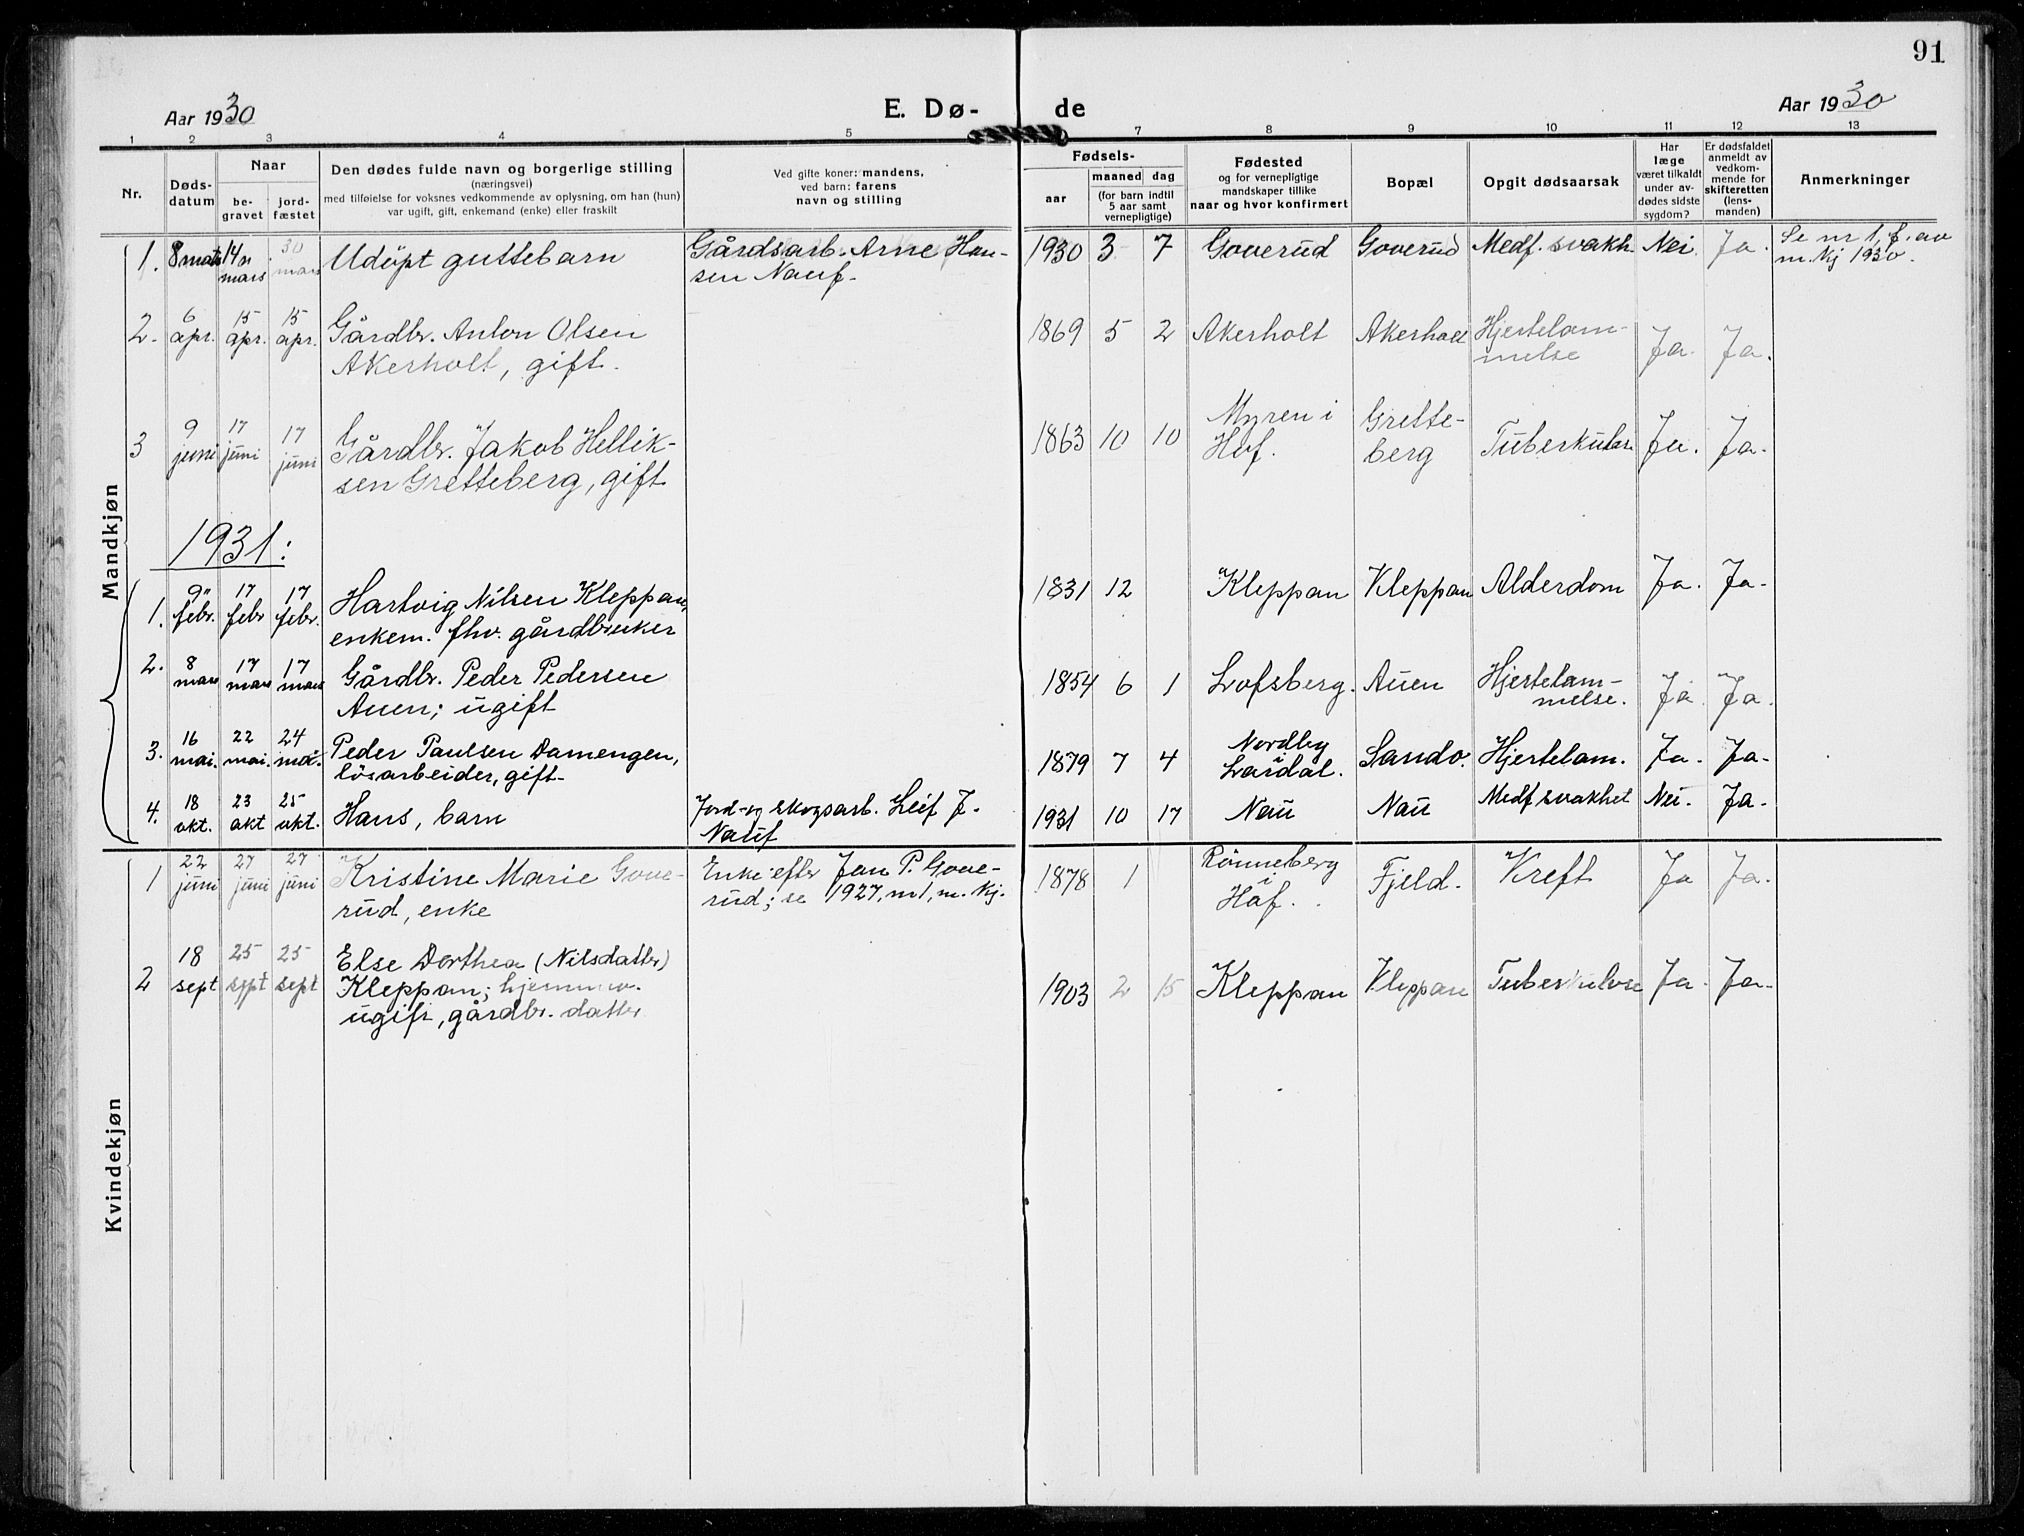 91
Aar 1930
E. Dø-
de
Aar 1930
1 2 3 4 5 7 8 9 10 11 12 13
Nr.
Døds-
datum
Naar
be-
gravet
jord-
fæstet
Den dødes fulde navn og borgerlige stilling
(næringsvei)
med tilføielse for voksnes vedkommende av oplysning, om han (hun)
var ugift, gift, enkemand (enke) eller fraskilt
Ved gifte koner: mandens,
ved barn: farens
navn og stilling
Fødsels-
aar
maaned dag
(for barn indtil
5 aar samt
vernepligtige)
Fødested
og for vernepligtige
mandskaper tillike
naar og hvor konfirmert
Bopæl
Opgit dødsaarsak
Har
læge
været tilkaldt
under av-
dødes sidste
sygdom?
Er dødsfaldet
anmeldt av
vedkom-
mende for
skifteretten
(lens-
manden)
Anmerkninger
Mandkjøn
1. 8 mars 14 mars 30 mars Udöpt guttebarn Gårdsarb. Arne Han-
sen Nauf. 1930 3 7 Goverud Goverud Medf. svakh. Nei. Ja. Se nr 1, f. av
m.kj 1930.
2. 6 apr. 15 apr. 15 apr. Gårdbr. Anton Olsen
Akerholt, gift. 1869 5 2 Akerholt Akerholt Hjertelam-
melse Ja. Ja.
3 9 juni 17 juni 17 juni Gårdbr. Jakob Hellik-
sen Gretteberg, gift 1863 10 10 Myren i
Hof. Grette-
berg Tuberkulose Ja. Ja.
1931:
1. 9 febr. 17 febr 17 febr. Hartvig Nilsen Kleppan,
enkem. fhv. gårdbruker 1831 12 Kleppan Kleppan Alderdom Ja. Ja.
2. 8 mars 17 mars 17 mars Gårdbr. Peder Pedersen
Auen; ugift 1854 6 1 Lofsberg. Auen Hjertelam-
melse. Ja. Ja.
3. 16 mai. 22 mai. 24 mai. Peder Paulsen Damengen,
lösarbeider, gift 1879 7 4 Nordby
i
Lardal. Sando. Hjertelam. Ja. Ja.
4. 18 okt. 23 okt 25 okt. Hans, barn Jord- og skogsarb. Leif J.
Nauf 1931 10 17 Nau Nau Medf svakhet Nei. Ja.
Kvindekjøn
1 22 juni 27 juni 27 juni Kristine Marie Gove-
rud, enke Enke efter Jan P. Gove-
rud; se 1927, nr 1, m. kj. 1878 1 Rönneberg
i
Hof. Fjeld. Kreft Ja Ja.
2 18 sept 25 sept 25 sept Else Dorthea (Nilsdatter)
Kleppan; hjemmev.
ugift, gårdbr. datter 1903 2 15 Kleppan Kleppan Tuberkulose Ja. Ja.